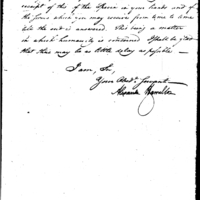 receipt of this of the Specie in your hands and of
the sums which you may receive from time to time
till the end is answered. This being a matter
in which humanity is concerned I shall be glad
that there may be as little delay as possible —
I am, Sir,
Your Obed. Servant
Alexander Hamilton